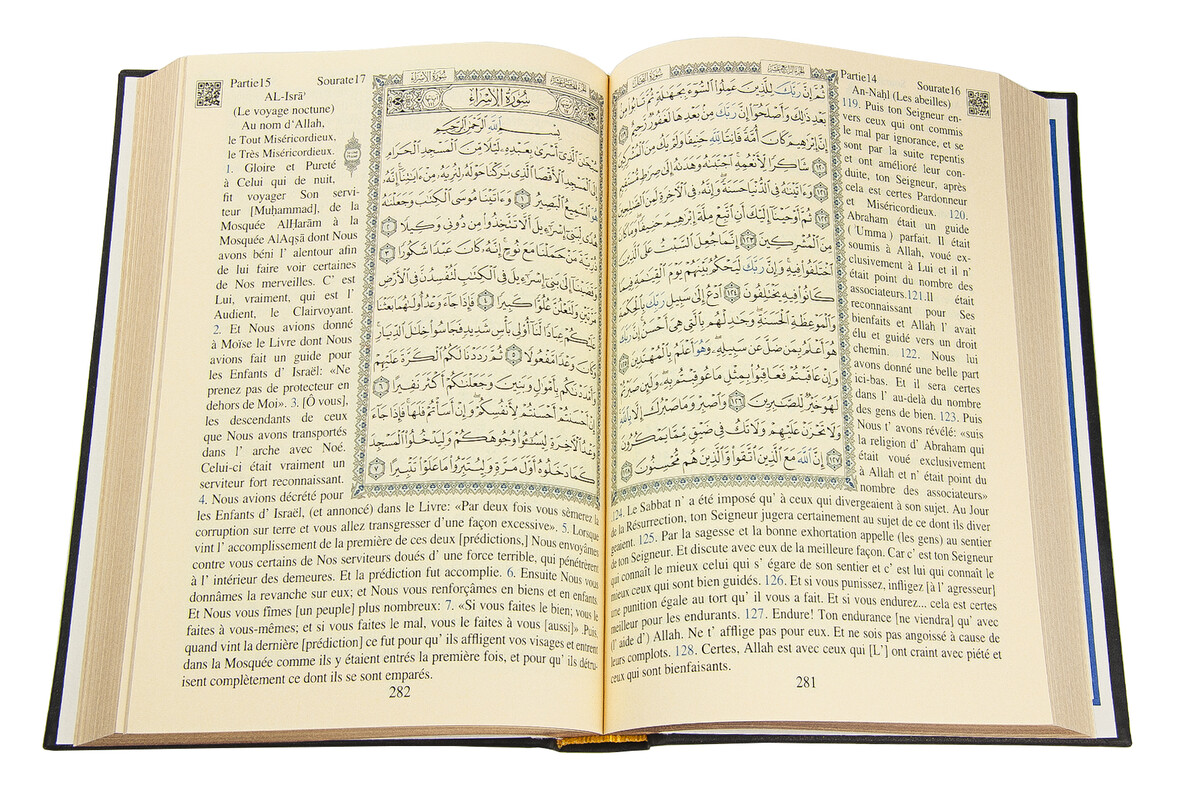 Partie14 Sourate16
An-Naḥl (Les abeilles)
119. Puis ton Seigneur en-
vers ceux qui ont commis
le mal par ignorance, et se
sont par la suite repentis
et ont amélioré leur con-
duite, ton Seigneur, après
cela est certes Pardonneur
et Miséricordieux. 120.
Abraham était un guide
(ʿUmma) parfait. Il était
soumis à Allah, voué ex-
clusivement à Lui et il n'
était point du nombre des
associateurs.121.Il était
reconnaissant pour Ses
bienfaits et Allah l' avait
élu et guidé vers un droit
chemin. 122. Nous lui
avons donné une belle part
ici-bas. Et il sera certes
dans l' au-delà du nombre
des gens de bien. 123. Puis
Nous t' avons révélé: «suis
la religion d' Abraham qui
était voué exclusivement
à Allah et n' était point du
nombre des associateurs»
ثُمَّ إِنَّ رَبَّكَ لِلَّذِينَ عَمِلُوا السُّوءَ بِجَهَالَةٍ ثُمَّ تَابُوا مِنْ
بَعْدِ ذَٰلِكَ وَأَصْلَحُوا إِنَّ رَبَّكَ مِنْ بَعْدِهَا لَغَفُورٌ رَحِيمٌ ١١٩
إِنَّ إِبْرَاهِيمَ كَانَ أُمَّةً قَانِتًا لِلَّهِ حَنِيفًا وَلَمْ يَكُ مِنَ الْمُشْرِكِينَ
١٢٠ شَاكِرًا لِأَنْعُمِهِ اجْتَبَاهُ وَهَدَاهُ إِلَىٰ صِرَاطٍ مُسْتَقِيمٍ
١٢١ وَآتَيْنَاهُ فِي الدُّنْيَا حَسَنَةً وَإِنَّهُ فِي الْآخِرَةِ لَمِنَ الصَّالِحِينَ
١٢٢ ثُمَّ أَوْحَيْنَا إِلَيْكَ أَنِ اتَّبِعْ مِلَّةَ إِبْرَاهِيمَ حَنِيفًا وَمَا كَانَ
مِنَ الْمُشْرِكِينَ ١٢٣ إِنَّمَا جُعِلَ السَّبْتُ عَلَى الَّذِينَ
اخْتَلَفُوا فِيهِ وَإِنَّ رَبَّكَ لَيَحْكُمُ بَيْنَهُمْ يَوْمَ الْقِيَامَةِ فِيمَا
كَانُوا فِيهِ يَخْتَلِفُونَ ١٢٤ ادْعُ إِلَىٰ سَبِيلِ رَبِّكَ بِالْحِكْمَةِ
وَالْمَوْعِظَةِ الْحَسَنَةِ وَجَادِلْهُمْ بِالَّتِي هِيَ أَحْسَنُ إِنَّ رَبَّكَ
هُوَ أَعْلَمُ بِمَنْ ضَلَّ عَنْ سَبِيلِهِ وَهُوَ أَعْلَمُ بِالْمُهْتَدِينَ ١٢٥
وَإِنْ عَاقَبْتُمْ فَعَاقِبُوا بِمِثْلِ مَا عُوقِبْتُمْ بِهِ وَلَئِنْ صَبَرْتُمْ
لَهُوَ خَيْرٌ لِلصَّابِرِينَ ١٢٦ وَاصْبِرْ وَمَا صَبْرُكَ إِلَّا بِاللَّهِ
وَلَا تَحْزَنْ عَلَيْهِمْ وَلَا تَكُ فِي ضَيْقٍ مِمَّا يَمْكُرُونَ
١٢٧ إِنَّ اللَّهَ مَعَ الَّذِينَ اتَّقَوْا وَالَّذِينَ هُمْ مُحْسِنُونَ ١٢٨
124. Le Sabbat n' a été imposé qu' à ceux qui divergeaient à son sujet. Au Jour
de la Résurrection, ton Seigneur jugera certainement au sujet de ce dont ils diver
geaient. 125. Par la sagesse et la bonne exhortation appelle (les gens) au sentier
de ton Seigneur. Et discute avec eux de la meilleure façon. Car c' est ton Seigneur
qui connaît le mieux celui qui s' égare de son sentier et c' est lui qui connaît le
mieux ceux qui sont bien guidés. 126. Et si vous punissez, infligez [à l' agresseur]
une punition égale au tort qu' il vous a fait. Et si vous endurez... cela est certes
meilleur pour les endurants. 127. Endure! Ton endurance [ne viendra] qu' avec
(l' aide d') Allah. Ne t' afflige pas pour eux. Et ne sois pas angoissé à cause de
leurs complots. 128. Certes, Allah est avec ceux qui [L'] ont craint avec piété et
ceux qui sont bienfaisants.
281
Partie15 Sourate17
AL-Isrāʾ
(Le voyage noctune)
Au nom d'Allah,
le Tout Miséricordieux.
le Très Miséricordieux.
1. Gloire et Pureté
à Celui qui de nuit,
fit voyager Son servi-
teur [Muḥammad], de la
Mosquée AlḤarām à la
Mosquée AlAqṣā dont Nous
avons béni l' alentour afin
de lui faire voir certaines
de Nos merveilles. C' est
Lui, vraiment, qui est l'
Audient, le Clairvoyant.
2. Et Nous avions donné
à Moïse le Livre dont Nous
avions fait un guide pour
les Enfants d' Israël: «Ne
prenez pas de protecteur en
dehors de Moi». 3. [Ô vous],
les descendants de ceux
que Nous avons transportés
dans l' arche avec Noé.
Celui-ci était vraiment un
serviteur fort reconnaissant.
4. Nous avions décrété pour
سُورَةُ الْإِسْرَاءِ
سُورَةُ الْإِسْرَاءِ
بِسْمِ اللَّهِ الرَّحْمَٰنِ الرَّحِيمِ
سُبْحَانَ الَّذِي أَسْرَىٰ بِعَبْدِهِ لَيْلًا مِنَ الْمَسْجِدِ الْحَرَامِ
إِلَى الْمَسْجِدِ الْأَقْصَا الَّذِي بَارَكْنَا حَوْلَهُ لِنُرِيَهُ مِنْ آيَاتِنَا إِنَّهُ
هُوَ السَّمِيعُ الْبَصِيرُ ١ وَآتَيْنَا مُوسَى الْكِتَابَ وَجَعَلْنَاهُ
هُدًى لِبَنِي إِسْرَائِيلَ أَلَّا تَتَّخِذُوا مِنْ دُونِي وَكِيلًا ٢
ذُرِّيَّةَ مَنْ حَمَلْنَا مَعَ نُوحٍ إِنَّهُ كَانَ عَبْدًا شَكُورًا ٣
وَقَضَيْنَا إِلَىٰ بَنِي إِسْرَائِيلَ فِي الْكِتَابِ لَتُفْسِدُنَّ فِي الْأَرْضِ
مَرَّتَيْنِ وَلَتَعْلُنَّ عُلُوًّا كَبِيرًا ٤ فَإِذَا جَاءَ وَعْدُ أُولَاهُمَا بَعَثْنَا
عَلَيْكُمْ عِبَادًا لَنَا أُولِي بَأْسٍ شَدِيدٍ فَجَاسُوا خِلَالَ الدِّيَارِ
وَكَانَ وَعْدًا مَفْعُولًا ٥ ثُمَّ رَدَدْنَا لَكُمُ الْكَرَّةَ عَلَيْهِمْ
وَأَمْدَدْنَاكُمْ بِأَمْوَالٍ وَبَنِينَ وَجَعَلْنَاكُمْ أَكْثَرَ نَفِيرًا ٦
إِنْ أَحْسَنْتُمْ أَحْسَنْتُمْ لِأَنْفُسِكُمْ وَإِنْ أَسَأْتُمْ فَلَهَا فَإِذَا جَاءَ
وَعْدُ الْآخِرَةِ لِيَسُوءُوا وُجُوهَكُمْ وَلِيَدْخُلُوا الْمَسْجِدَ
كَمَا دَخَلُوهُ أَوَّلَ مَرَّةٍ وَلِيُتَبِّرُوا مَا عَلَوْا تَتْبِيرًا ٧
les Enfants d' Israël, (et annoncé) dans le Livre: «Par deux fois vous sèmerez la
corruption sur terre et vous allez transgresser d'une façon excessive». 5. Lorsque
vint l' accomplissement de la première de ces deux [prédictions,] Nous envoyâmes
contre vous certains de Nos serviteurs doués d' une force terrible, qui pénétrèrent
à l' intérieur des demeures. Et la prédiction fut accomplie. 6. Ensuite Nous vous
donnâmes la revanche sur eux; et Nous vous renforçâmes en biens et en enfants.
Et Nous vous fîmes [un peuple] plus nombreux: 7. «Si vous faites le bien; vous le
faites à vous-mêmes; et si vous faites le mal, vous le faites à vous [aussi]» .Puis,
quand vint la dernière [prédiction] ce fut pour qu' ils affligent vos visages et entrent
dans la Mosquée comme ils y étaient entrés la première fois, et pour qu' ils détru-
isent complètement ce dont ils se sont emparés.
282